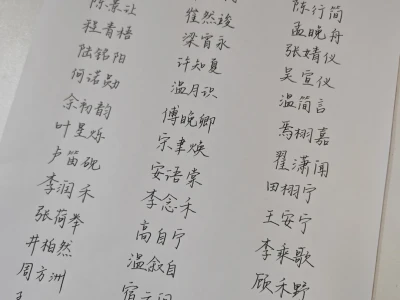 陈景让
程青梧
陆铭阳
何诺勋
余初韵
叶星烁
卢笛砚
李润禾
张荷举
井柏然
周方洲
崔然竣
梁宵永
许知夏
温月识
傅晚卿
宗聿焕
安语棠
李念禾
高自宁
温叙自
陈行简
孟晚舟
张婧仪
吴宣仪
温简言
焉栩嘉
翟潇闻
田栩宁
王安宁
李乘歌
顾禾野